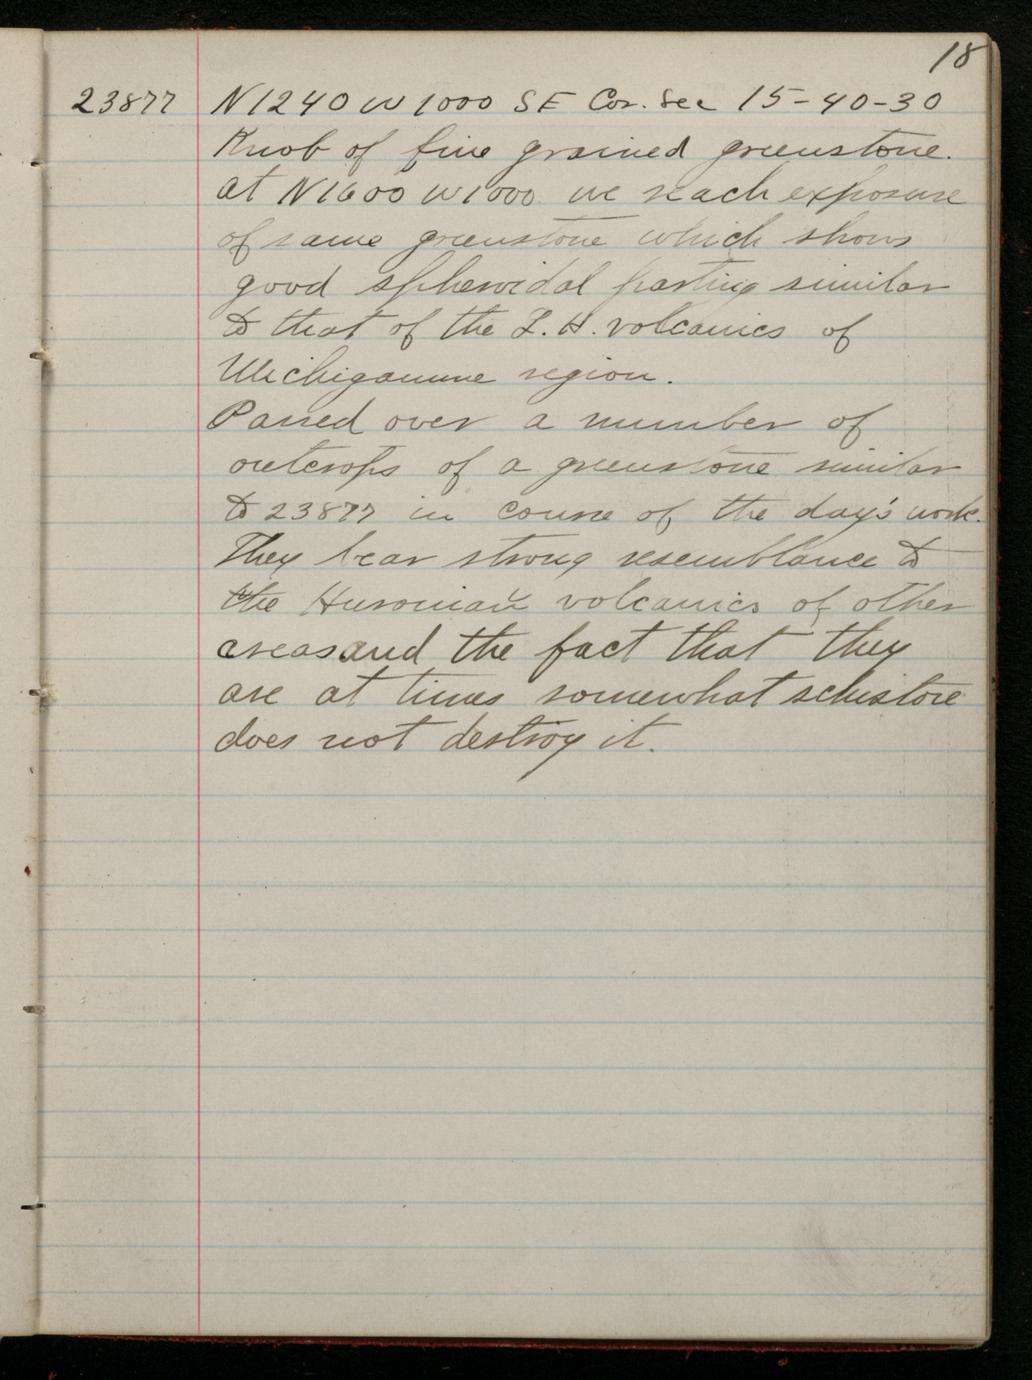 18
23877 N1240 W1000 SE Cor. Sec 15-40-30
Knob of fine grained greenstone.
at N1600 W1000 we reach exposure
of same greenstone which shows
good spheroidal parting similar
to that of the L. H. volcanics of
Michigamme region.
Passed over a number of
outcrops of a greenstone similar
to 23877 in course of the day's work.
They bear strong resemblance to
the Huronian volcanics of other
areas and the fact that they
are at times somewhat schistose
does not destroy it.